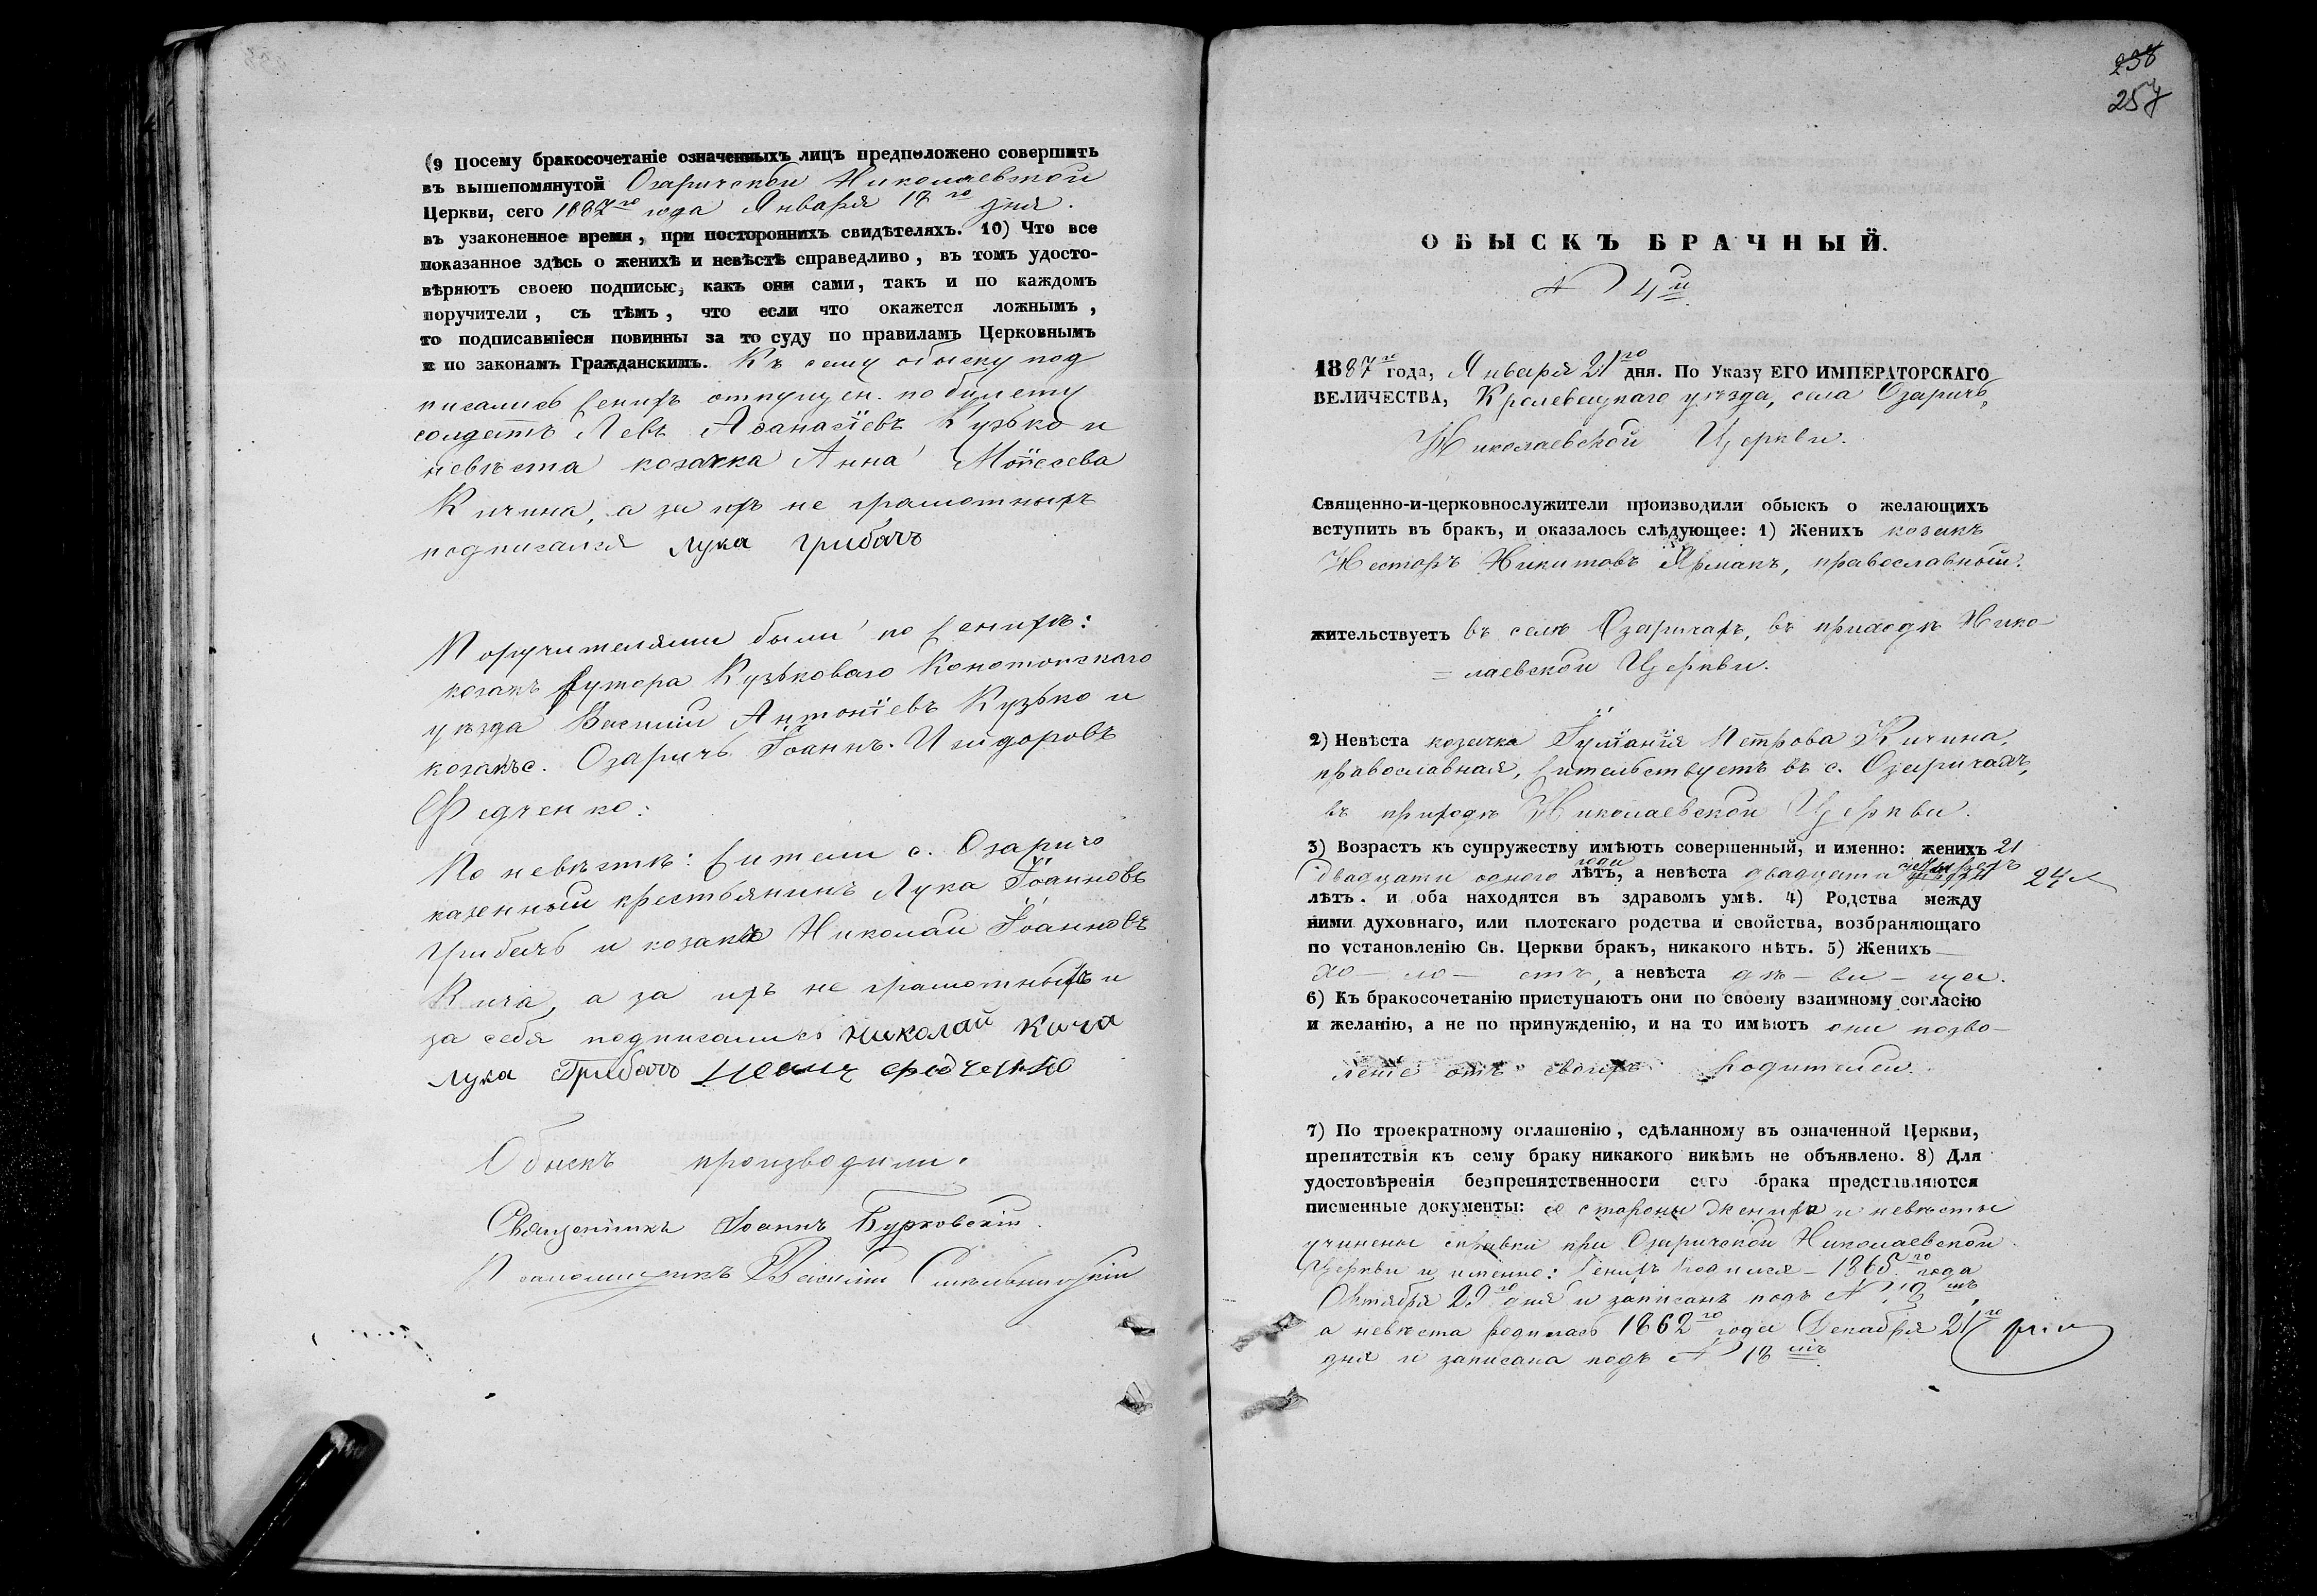 (9 Посему бракосочетаніе означенныхъ лицъ предположено совершить
въ вышепомянутой Озаричской Николаевской
Церкви, сего 1887го года Января 18го дня.
въ узаконенное время, при постороннихъ свидѣтеляхъ. 10) Что все
показанное здѣсь о женихѣ и невѣстѣ справедливо, въ томъ удосто-
вѣряютъ своею подписью, какъ они сами, такъ и по каждомъ
поручители, съ тѣмъ, что если что окажется ложнымъ,
то подписавшіеся повинны за то суду по правиламъ Церковнымъ
и по законамъ Гражданскимъ. Къ сему обыску под
писались женихъ отпущен. по билету
солдатъ Левъ Аѳанасіевъ Кузько и
невѣста козачка Анна Моѵсеева
Кичина, а за ихъ не грамотныхъ
подписался Лука Грибачъ
Поручителями были по женихѣ:
козакъ хутора Кузьковаго Конотопскаго
уѣзда Василій Антоніевъ Кузько и
козакъ с. Озаричъ Іоаннъ Исидоровъ
Федченко:
По невѣстѣ: жители с. Озаричъ
казенный крестьянинъ Лука Іоанновъ
Грибачъ и козакъ Николай Іоанновъ
Кича, а за ихъ не грамотныхъ и
за себя подписались Николай Кича
Лука Грибачъ Иванъ Федченко
Обыскъ производили:
Священникъ Іоаннъ Бурковскій
Псаломщикъ Василій
238
257
ОБЫСКЪ БРАЧНЫЙ.
N 4й
1887го года, Января 21го дня. По Указу ЕГО ИМПЕРАТОРСКАГО
ВЕЛИЧЕСТВА, Кролевецкаго уѣзда, села Озаричъ,
Николаевской Церкви.
Священно-и-церковнослужители производили обыскъ о желающихъ
вступить въ бракъ, и оказалось слѣдующее: 1) Женихъ козакъ
Несторъ Никитовъ Ярмакъ, православный.
жительствуетъ въ селѣ Озаричахъ, въ приходѣ Нико
= лаевской Церкви.
2) Невѣста козачка Іуліанія Петрова Кичина,
православная, жительствуетъ въ с. Озаричахъ,
въ приходѣ Николаевской Церкви.
3) Возрастъ къ супружеству имѣютъ совершенный, и именно: женихъ 21
двадцати одного года лѣтъ, а невѣста двадцати четырехъ 24
лѣтъ. и оба находятся въ здравомъ умѣ. 4) Родства между
ними духовнаго, или плотскаго родства и свойства, возбраняющаго
по установленію Св. Церкви бракъ, никакого нѣтъ. 5) Женихъ —
хо — ло — стъ, а невѣста дѣ — ви — ца.
6) Къ бракосочетанію приступаютъ они по своему взаимному согласію
и желанію, а не по принужденію, и на то имѣютъ они позво—
леніе отъ своихъ родителей.
7) По троекратному оглашенію, сдѣланному въ означенной Церкви,
препятствія къ сему браку никакого никѣмъ не объявлено. 8) Для
удостовѣренія безпрепятственности сего брака представляются
писменные документы: со стороны жениха и невѣсты
учинены справки при Озаричской Николаевской
Церкви и именно: женихъ родился — 1865го года
Октября 29го дня и записанъ подъ N
а невѣста родилась 1862го года Декабря 21го
дня и записана подъ N 18мъ